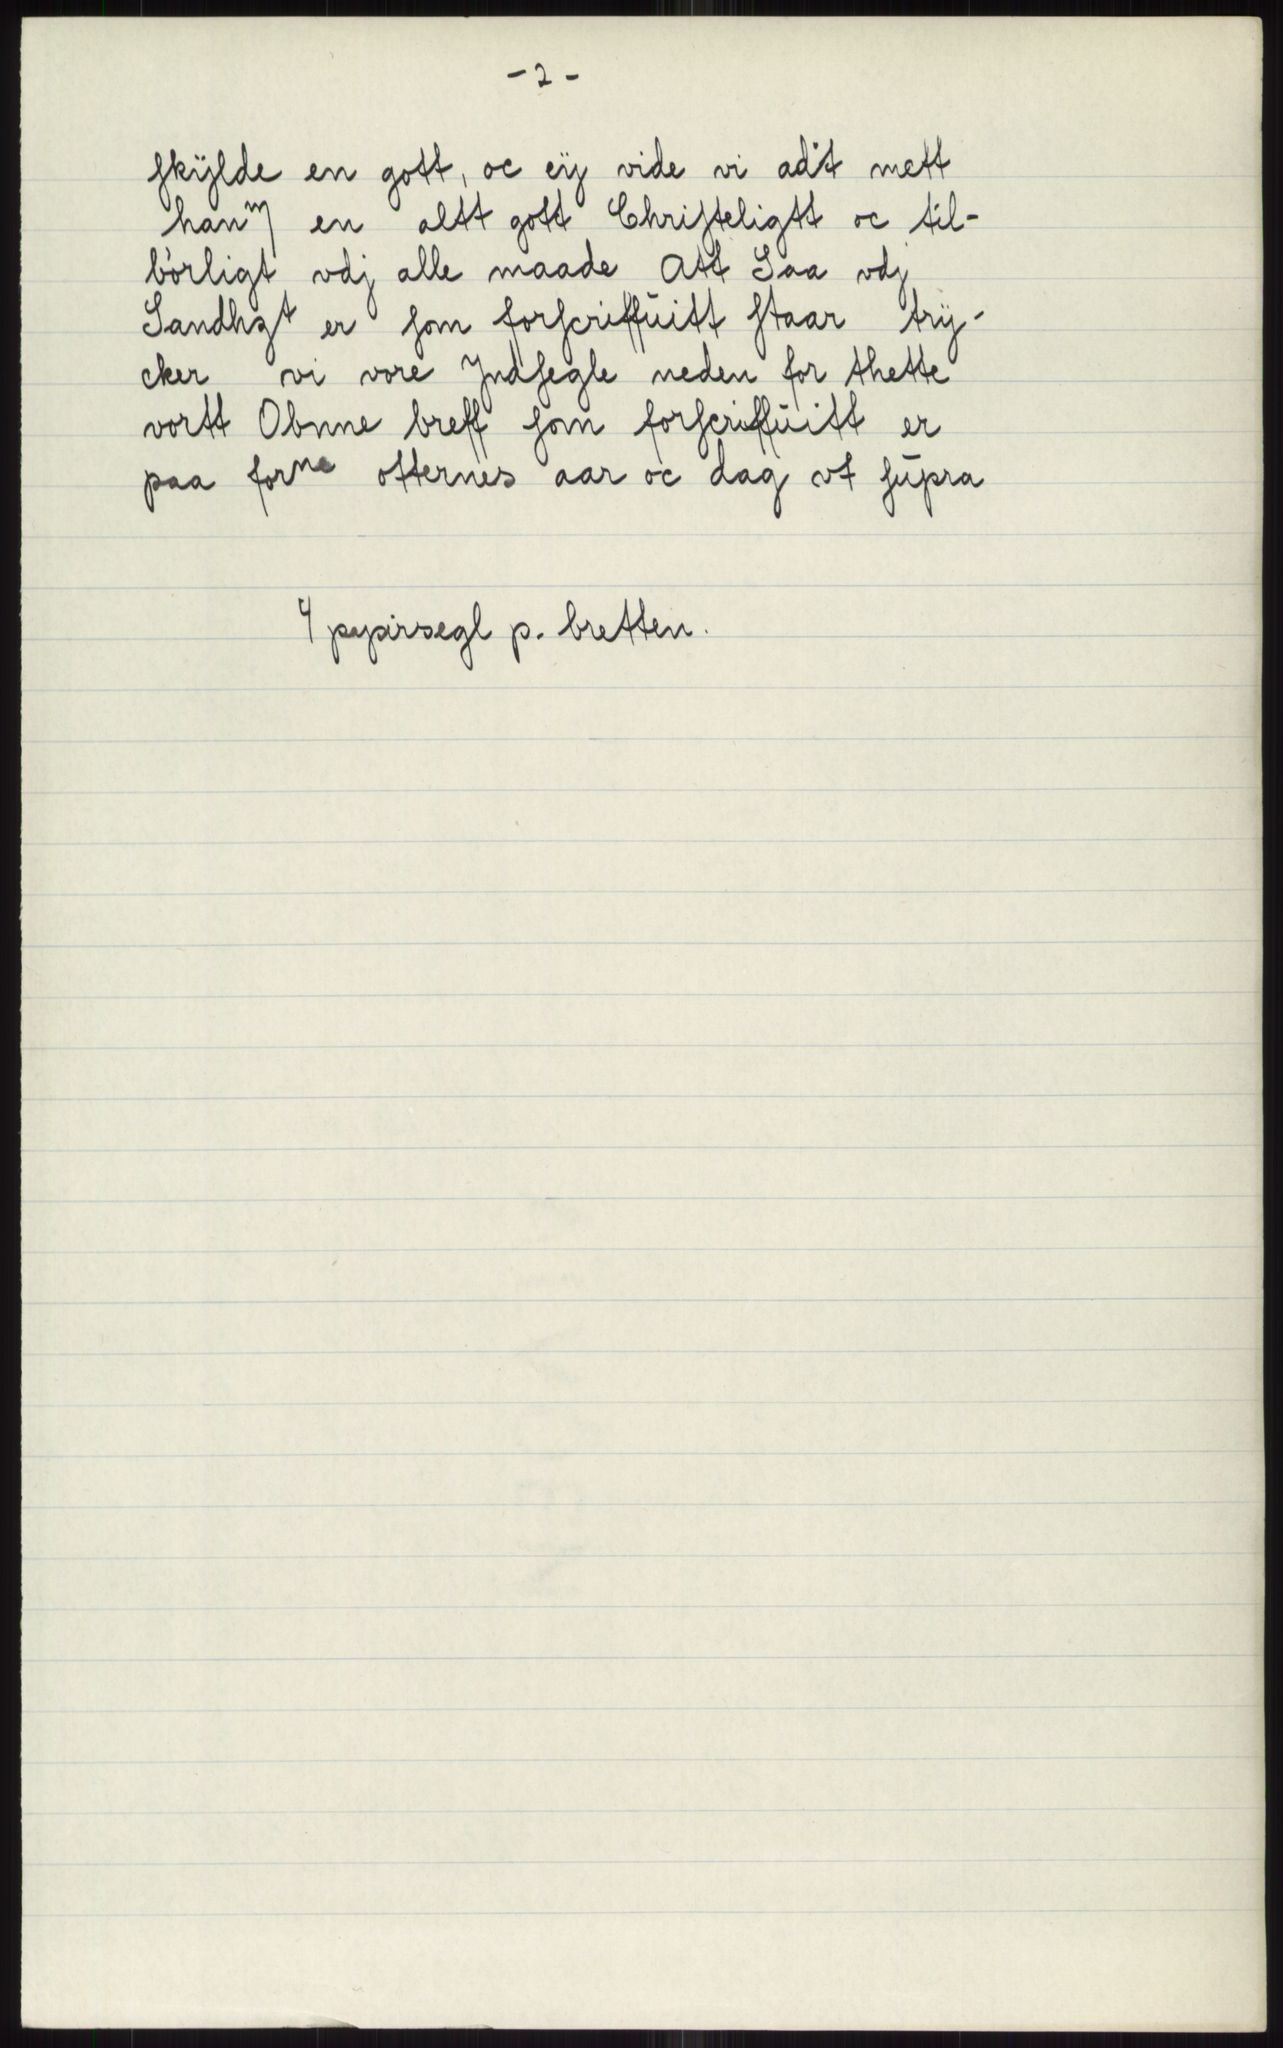 - 2 -
skÿlde en gott, oc eÿ vide vi adit mett
han en altt gott Christeligtt oc til-
börligt vdj alle maade Att Saa vdj
Sandhgt er som forscriffuitt staar trÿ-
cker vi vore Jndsegle neden for thette
vortt Obnne breff som forscriffuitt er
paa forne otternes aar oc dag vt supra
4 papirsegl p. bretten.